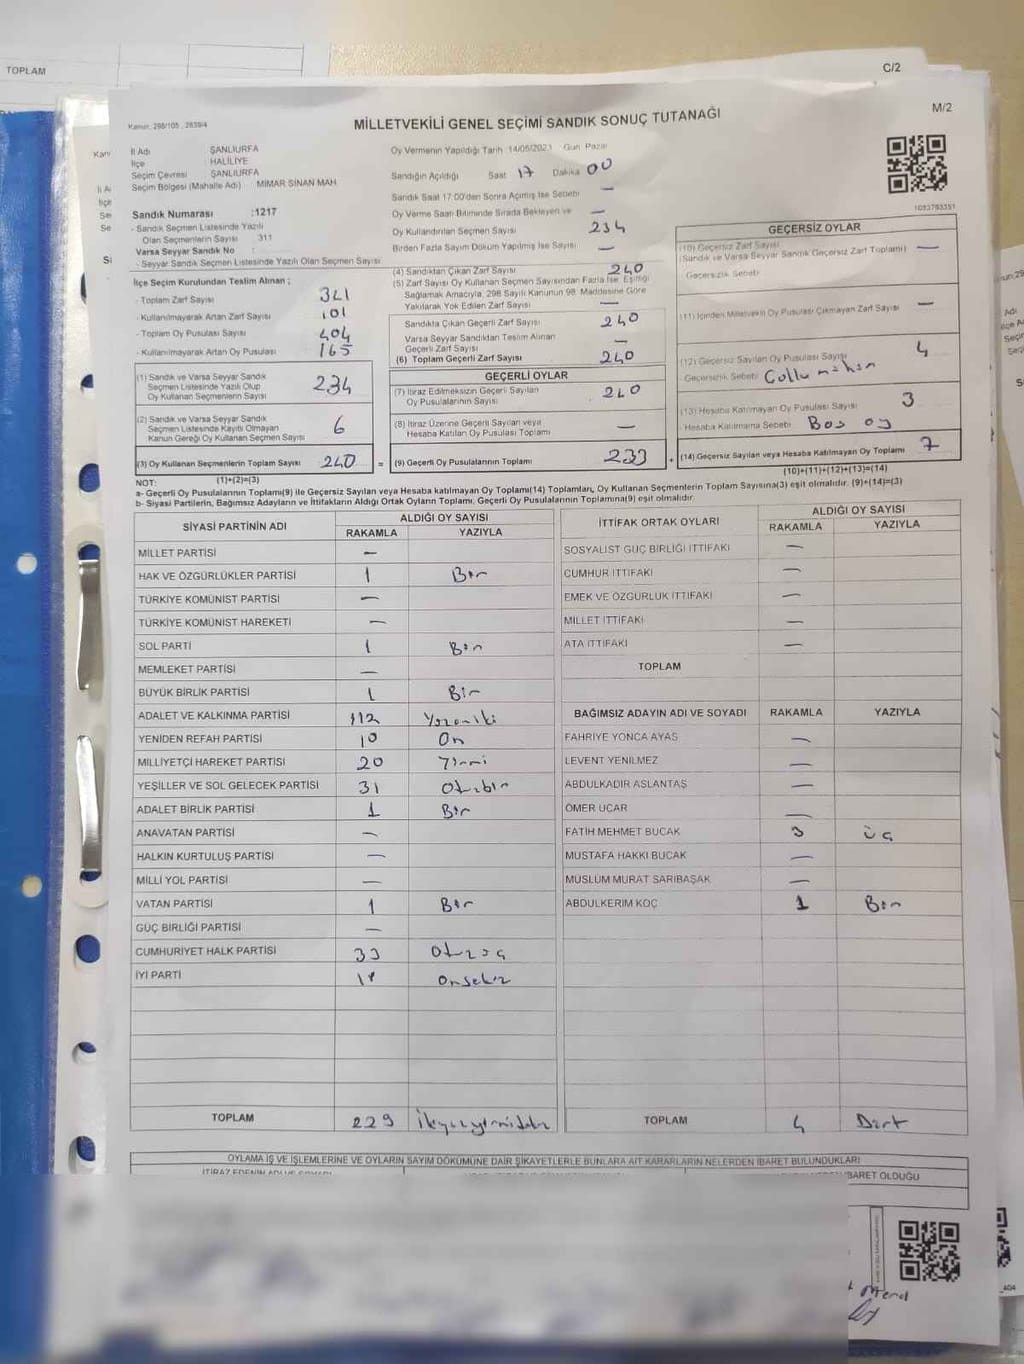 TOPLAM
C/2
M/2
Kanun: 298/105 , 2839/4
MİLLETVEKİLİ GENEL SEÇİMİ SANDIK SONUÇ TUTANAĞI
İl Adı : ŞANLIURFA
İlçe : HALİLİYE
Seçim Çevresi : ŞANLIURFA
Seçim Bölgesi (Mahalle Adı) : MİMAR SİNAN MAH
Sandık Numarası :1217
- Sandık Seçmen Listesinde Yazılı
Olan Seçmenlerin Sayısı : 311
Varsa Seyyar Sandık No :
- Seyyar Sandık Seçmen Listesinde Yazılı Olan Seçmen Sayısı
Oy Vermenin Yapıldığı Tarih 14/05/2023 Gün Pazar
Sandığın Açıldığı Saat 17 Dakika 00
Sandık Saat 17:00'den Sonra Açılmış İse Sebebi —
Oy Verme Saati Bitiminde Sırada Bekleyen ve —
Oy Kullandırılan Seçmen Sayısı 234
Birden Fazla Sayım Döküm Yapılmış İse Sayısı —
1053763351
İlçe Seçim Kurulundan Teslim Alınan ;
- Toplam Zarf Sayısı 341
- Kullanılmayarak Artan Zarf Sayısı 101
- Toplam Oy Pusulası Sayısı 404
- Kullanılmayarak Artan Oy Pusulası 165
(1) Sandık ve Varsa Seyyar Sandık
Seçmen Listesinde Yazılı Olup
Oy Kullanan Seçmenlerin Sayısı 234
(2) Sandık ve Varsa Seyyar Sandık
Seçmen Listesinde Kaydı Olmayan
Kanun Gereği Oy Kullanan Seçmen Sayısı 6
(3) Oy Kullanan Seçmenlerin Toplam Sayısı 240 =
(1)+(2)=(3)
(4) Sandıktan Çıkan Zarf Sayısı 240
(5) Zarf Sayısı Oy Kullanan Seçmen Sayısından Fazla İse; Eşitliği
Sağlamak Amacıyla, 298 Sayılı Kanunun 98. Maddesine Göre
Yakılarak Yok Edilen Zarf Sayısı —
Sandıkta Çıkan Geçerli Zarf Sayısı 240
Varsa Seyyar Sandıktan Teslim Alınan
Geçerli Zarf Sayısı —
(6) Toplam Geçerli Zarf Sayısı 240
GEÇERLİ OYLAR
(7) İtiraz Edilmeksizin Geçerli Sayılan
Oy Pusulalarının Sayısı 240
(8) İtiraz Üzerine Geçerli Sayılan veya
Hesaba Katılan Oy Pusulası Toplamı —
(9) Geçerli Oy Pusulalarının Toplamı 233 +
GEÇERSİZ OYLAR
(10) Geçersiz Zarf Sayısı
(Sandık ve Varsa Seyyar Sandık Geçersiz Zarf Toplamı) —
- Geçersizlik Sebebi
(11) İçinden Milletvekili Oy Pusulası Çıkmayan Zarf Sayısı —
(12) Geçersiz Sayılan Oy Pusulası Sayısı 4
Geçersizlik Sebebi:
(13) Hesaba Katılmayan Oy Pusulası Sayısı 3
- Hesaba Katılmama Sebebi: Boş oy
(14) Geçersiz Sayılan veya Hesaba Katılmayan Oy Toplamı 7
(10)+(11)+(12)+(13)=(14)
NOT:
a- Geçerli Oy Pusulalarının Toplamı(9) ile Geçersiz Sayılan veya Hesaba katılmayan Oy Toplamı(14) Toplamları, Oy Kullanan Seçmenlerin Toplam Sayısına(3) eşit olmalıdır. (9)+(14)=(3)
b- Siyasi Partilerin, Bağımsız Adayların ve İttifakların Aldığı Ortak Oyların Toplamı, Geçerli Oy Pusulalarının Toplamına(9) eşit olmalıdır.
SİYASİ PARTİNİN ADI ALDIĞI OY SAYISI
RAKAMLA YAZIYLA
MİLLET PARTİSİ —
HAK VE ÖZGÜRLÜKLER PARTİSİ 1 Bir
TÜRKİYE KOMÜNİST PARTİSİ —
TÜRKİYE KOMÜNİST HAREKETİ —
SOL PARTİ 1 Bir
MEMLEKET PARTİSİ —
BÜYÜK BİRLİK PARTİSİ 1 Bir
ADALET VE KALKINMA PARTİSİ 112 Yüzoniki
YENİDEN REFAH PARTİSİ 10 On
MİLLİYETÇİ HAREKET PARTİSİ 20 Yirmi
YEŞİLLER VE SOL GELECEK PARTİSİ 31 Otuzbir
ADALET BİRLİK PARTİSİ 1 Bir
ANAVATAN PARTİSİ —
HALKIN KURTULUŞ PARTİSİ —
MİLLİ YOL PARTİSİ —
VATAN PARTİSİ 1 Bir
GÜÇ BİRLİĞİ PARTİSİ —
CUMHURİYET HALK PARTİSİ 33 Otuzüç
İYİ PARTİ 18 Onsekiz
TOPLAM 229
İTTİFAK ORTAK OYLARI ALDIĞI OY SAYISI
RAKAMLA YAZIYLA
SOSYALİST GÜÇ BİRLİĞİ İTTİFAKI —
CUMHUR İTTİFAKI —
EMEK VE ÖZGÜRLÜK İTTİFAKI —
MİLLET İTTİFAKI —
ATA İTTİFAKI —
TOPLAM
BAĞIMSIZ ADAYIN ADI VE SOYADI RAKAMLA YAZIYLA
FAHRİYE YONCA AYAS —
LEVENT YENİLMEZ —
ABDULKADİR ASLANTAŞ —
ÖMER UÇAR —
FATİH MEHMET BUCAK 3 üç
MUSTAFA HAKKI BUCAK —
MÜSLÜM MURAT SARIBAŞAK —
ABDULKERİM KOÇ 1 Bir
TOPLAM 4 Dört
OYLAMA İŞ VE İŞLEMLERİNE VE OYLARIN SAYIM DÖKÜMÜNE DAİR ŞİKAYETLERLE BUNLARA AİT KARARLARIN NELERDEN İBARET BULUNDUKLARI
İTİRAZ EDENİN ADI VE SOYADI
İBARET OLDUĞU